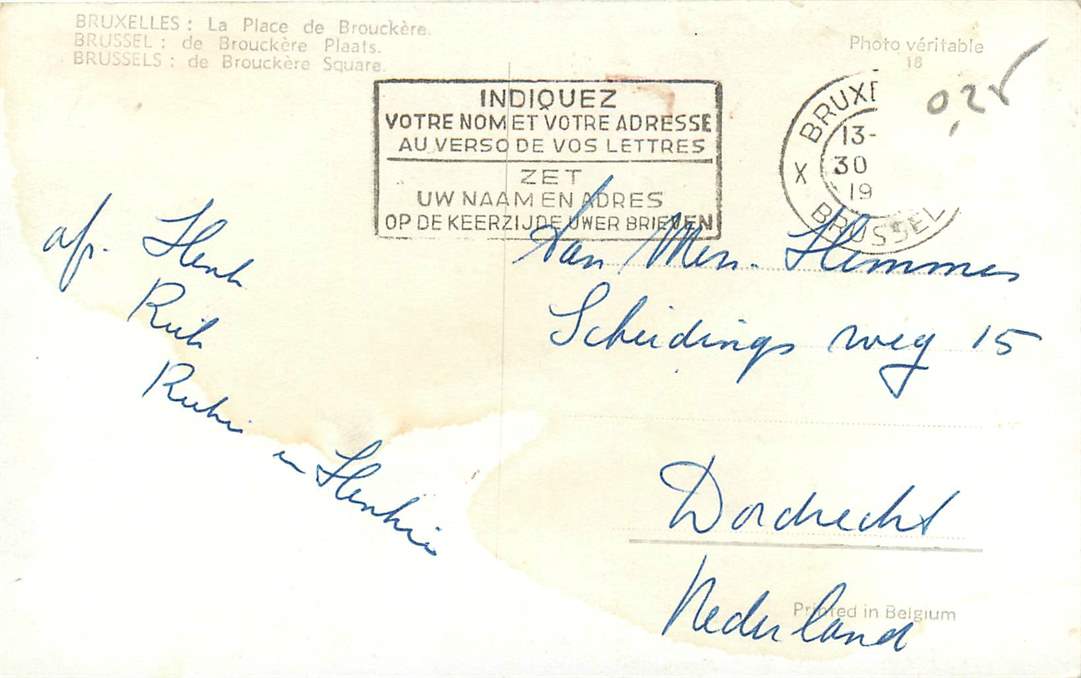 BRUXELLES : La Place de Brouckère.
BRUSSEL : de Brouckère Plaats.
BRUSSELS : de Brouckère Square.
Photo véritable
18
0,25
INDIQUEZ
VOTRE NOM ET VOTRE ADRESSE
AU VERSO DE VOS LETTRES
ZET
UW NAAM EN ADRES
OP DE KEERZIJDE UWER BRIEVEN
BRUXE
X
13-
30
19
BRUSSEL
afz. Henk
Rieth
Riekie en Henkie
Fam. Hemmes
Scheidings weg 15
Dordrecht
Nederland
Printed in Belgium